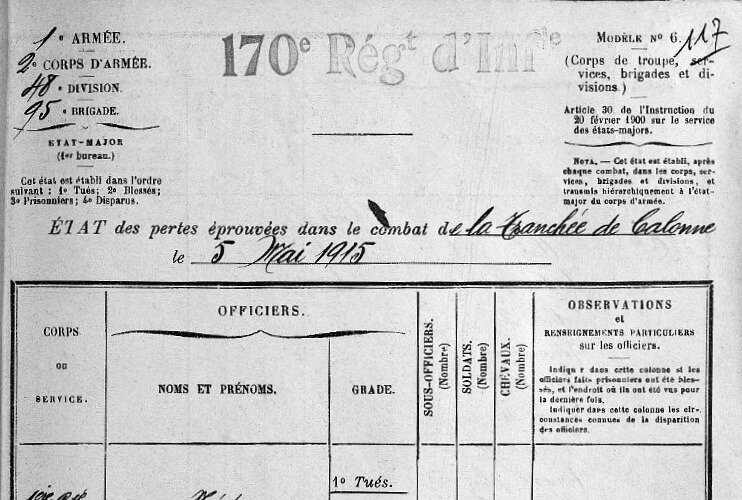 1e ARMÉE.
2e CORPS D'ARMÉE.
48e DIVISION.
95e BRIGADE.
ETAT-MAJOR
(1er bureau.)
Cet état est établi dans l'ordre
suivant : 1o Tués; 2o Blessés;
3o Prisonniers; 4o Disparus.
170e Régt d'Infie
MODÈLE No 6. 117
(Corps de troupe, ser-
vices, brigades et di-
visions.)
Article 30 de l'Instruction du
20 février 1900 sur le service
des états-majors.
NOTA. — Cet état est établi, après
chaque combat, dans les corps, ser-
vices, brigades et divisions, et
transmis hiérarchiquement à l'état-
major du corps d'armée.
ÉTAT des pertes éprouvées dans le combat de la Tranchée de Calonne
le 5 Mai 1915
CORPS
ou
SERVICE.
OFFICIERS.
NOMS ET PRÉNOMS.
GRADE.
SOUS-OFFICIERS.
(Nombre)
SOLDATS.
(Nombre)
CHEVAUX.
(Nombre)
OBSERVATIONS
et
RENSEIGNEMENTS PARTICULIERS
sur les officiers.
Indiquer dans cette colonne si les
officiers faits prisonniers ont été bles-
sés, et l'endroit où ils ont été vus pour
la dernière fois.
Indiquer dans cette colonne les cir-
constances connues de la disparition
des officiers.
1o Tués.